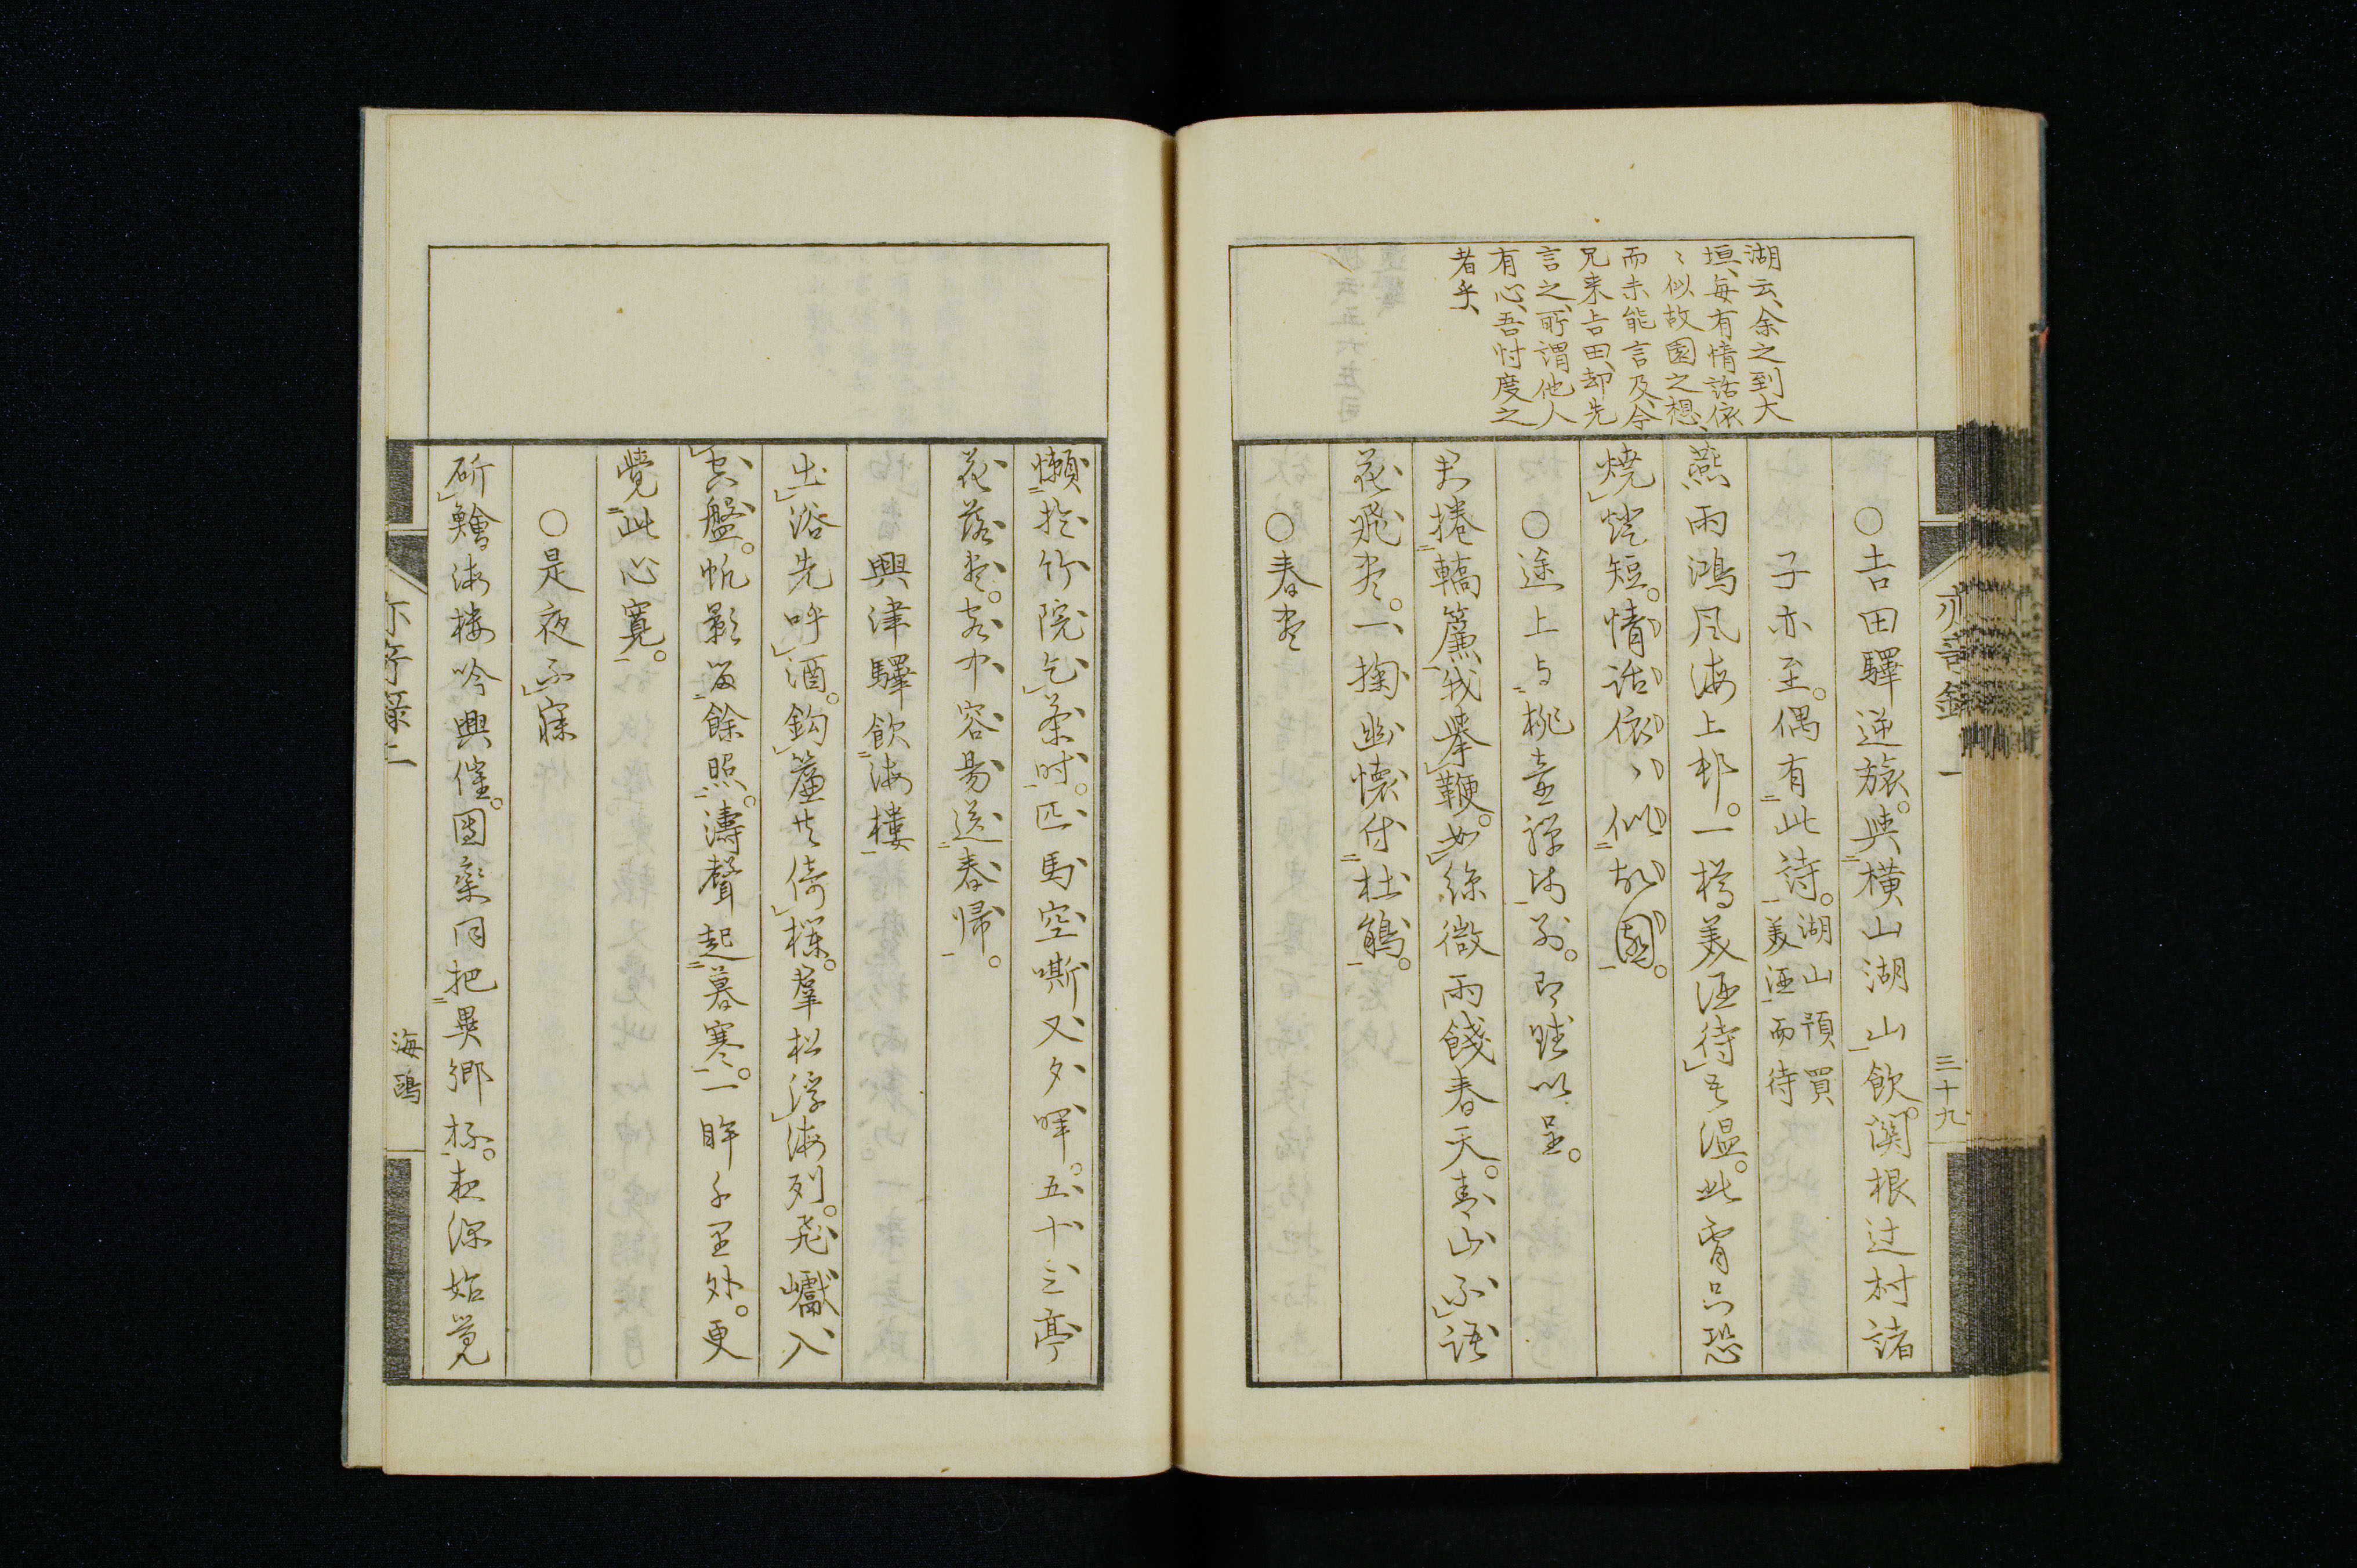 湖云、余之到大
垣、每有情話依
〻似故園之想、
而未能言及、今
兄来吉田、却先
言之、所謂他人
有心、吾忖度之
者乎、
○吉田驛逆旅。與横山湖山飲。関根辻村諸
子亦至。偶有此詩。湖山預買
美酒而待
燕雨鴻風海上邨。一樽美酒待吾温。此宵只恐
燒燈短。情話依〻似故園。
○途上与桃童禅師別。即賦以呈。
君捲轎簾我擧鞭。如絲微雨餞春天。青山不語
花飛尽。一掬幽懷付杜鵑。
○春尽
三十九
懶於竹院乞茶時。匹馬空嘶又夕暉。五十三亭
花落尽。客中容易送春帰。
興津驛飲海樓
出浴先呼酒。鈎簾共倚欄。羣松浮海列。飛巘入
杯盤。帆影留餘照。濤聲起暮寒。一眸千里外。更
覺此心寛。
○是夜不寐
斫鱠海楼吟興催。團欒同把異郷杯。夜深始覚
海鷗